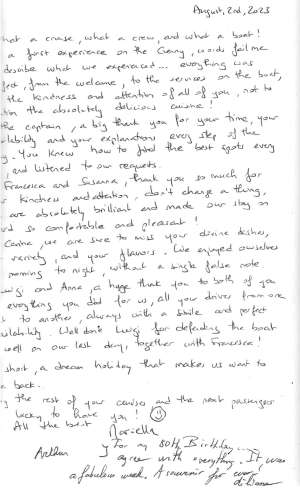 August, 2nd, 2023
what a cruise, what a crew, and what a boat!
a first experience on the Geny, words fail me
describe what we experienced... everything was
fect, from the welcome, to the services on the boat,
the kindness and attention of all of you, not to
tion the absolutely delicious cuisine!
the captain, a big thank you for your time, your
lability and your explanations every step of the
y. You knew how to find the best spots every
and listened to our requests.
Francesca and Susanna, thank you so much for
r kindness and attention, don't change a thing,
are absolutely brilliant and made our stay on
rd so comfortable and pleasant!
Carina, we are sure to miss your divine dishes,
variety, and your flavors. We enjoyed ourselves
morning to night, without a single false note.
uigi and Anna, a huge thank you to both of you
everything you did for us, all your drives from one
s to another, always with a smile and perfect
ailability. Well done Luigi for defending the boat
well on our last day, together with Francesca!
short, a dream holiday that makes us want to
e back.
y the rest of your cruises and the next passengers
lucky to have you!
All the best
Marielle
For my 80th Birthday...
Arthur I agree with everything. It was
a fabulous week. A souvenir for ever!